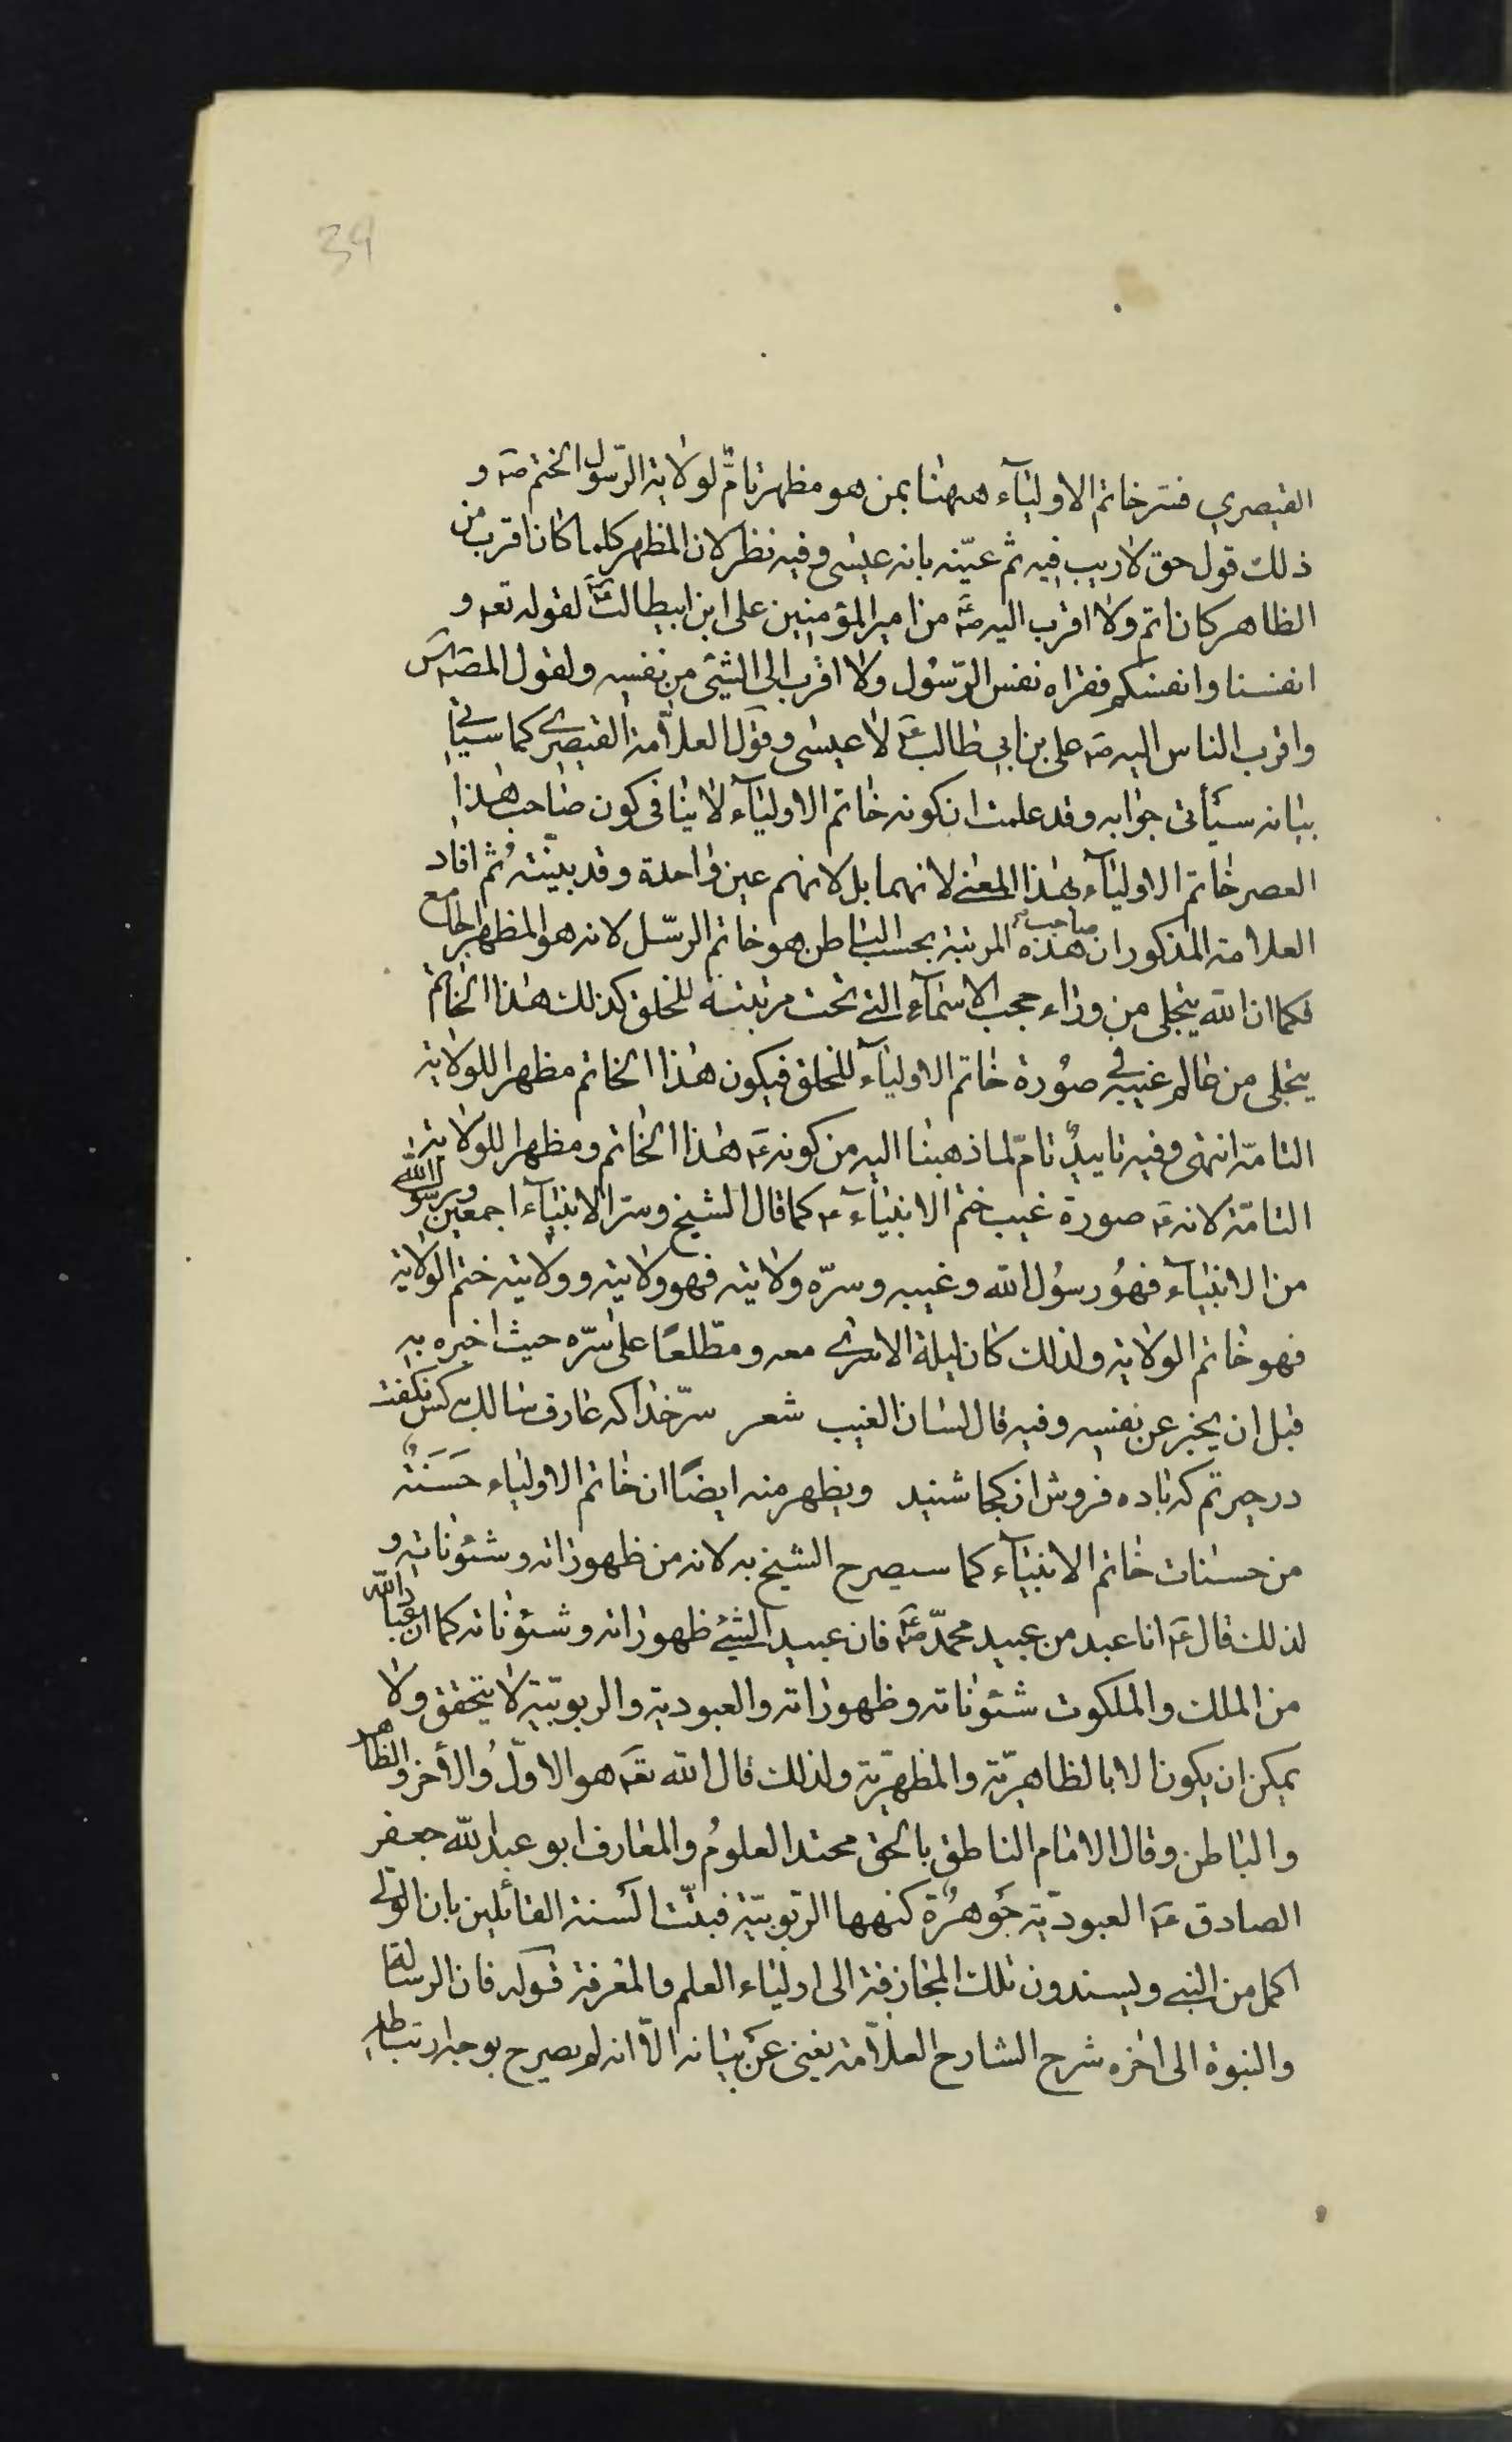 39
القيصري فسّر خاتم الاوليآء ههنا بمن هو مظهر تامّ لولاية الرّسول الختم صه و
ذلك قول حق لا ريب فيه ثم عيّنه بانه عيسى وفيه نظر لان المظهر كلما كان اقرب من
الظاهر كان اتم ولا اقرب اليه صه من امير المؤمنين على ابن ابيطالب عه لقوله تعه و
انفسنا وانفسكم فنراه نفس الرّسول ولا اقرب الى الشيئ من نفسه ولقول المصه
واقرب الناس اليه صه على بن ابي طالب عه لا عيسى وقول العلاّمة القيصري كما سياتي
بيانه سيأتى جوابه وقد علمت ان كونه خاتم الاوليآء لا ينافى كون صاحب هذا
العصر خاتم الاوليآء بهذا المعنى لانهما بل لانهم عين واحدة وقد بينته ثم افاد
العلامة المذكور ان صاحب هذه المرتبة بحسب الباطن هو خاتم الرسّل لانه هو المظهر الجامع
فكما ان الله يتجلى من وراء حجب الاسمآء التى تحت مرتبته للخلق كذلك هذا الخاتم
يتجلى من عالم غيبه في صورة خاتم الاوليآء للخلق فيكون هذا الخاتم مظهرا للولاية
التامّة انتهى وفيه تاييدٌ تامّ لما ذهبنا اليه من كونه عه هذا الخاتم ومظهرا للولاية
التامّة لانه عه صورة غيب ختم الانبيآء ص كما قال الشيخ وسرّ الانبيآء اجمعين ورسول الله
من الانبيآء فهو رسول الله وغيبه وسرّه ولايته فهو ولايته وولايته ختم الولاية
فهو خاتم الولاية ولذلك كان ليلة الاسرى معه ومطّلعًا على سرّه حيث اخبره به
قبل ان يخبر عن نفسه وفيه قال لسان الغيب شعر سرّ خدا كه عارف سالك بكس نكفت
در حيرتم كه باده فروش از كجا شنيد ويظهر منه ايضًا ان خاتم الاولياء حَسَنَةٌ
من حسنات خاتم الانبيآء كما سيصرح الشيخ به لانه من ظهوراته وشئوناته و
لذلك قال عه انا عبد من عبيد محمّد صه فان عبيد الشيئ ظهوراته وشئوناته كما ان عباد الله
من الملك والملكوت شئوناته وظهوراته والعبودية والربوبيّة لا يتحقق ولا
يمكن ان يكونا لا بالظاهريّة والمظهريّة ولذلك قال الله تعه هو الاوّل والأخر والظاهر
والباطن وقال الامام الناطق بالحق محتد العلوم والمعارف ابو عبد الله جعفر
الصادق عه العبوديّة جوهرة كنهها الربوبيّة فبئت السنة القائلين بان الولي
اكمل من النبى ويسندون تلك المجازفة الى اولياء العلم والمعرفة قوله فان الرسالة
والنبوة الى اخره شرح الشارح العلاّمة يغنى عن بيانه الاّ انه لم يصرح بوجه ارتباطه